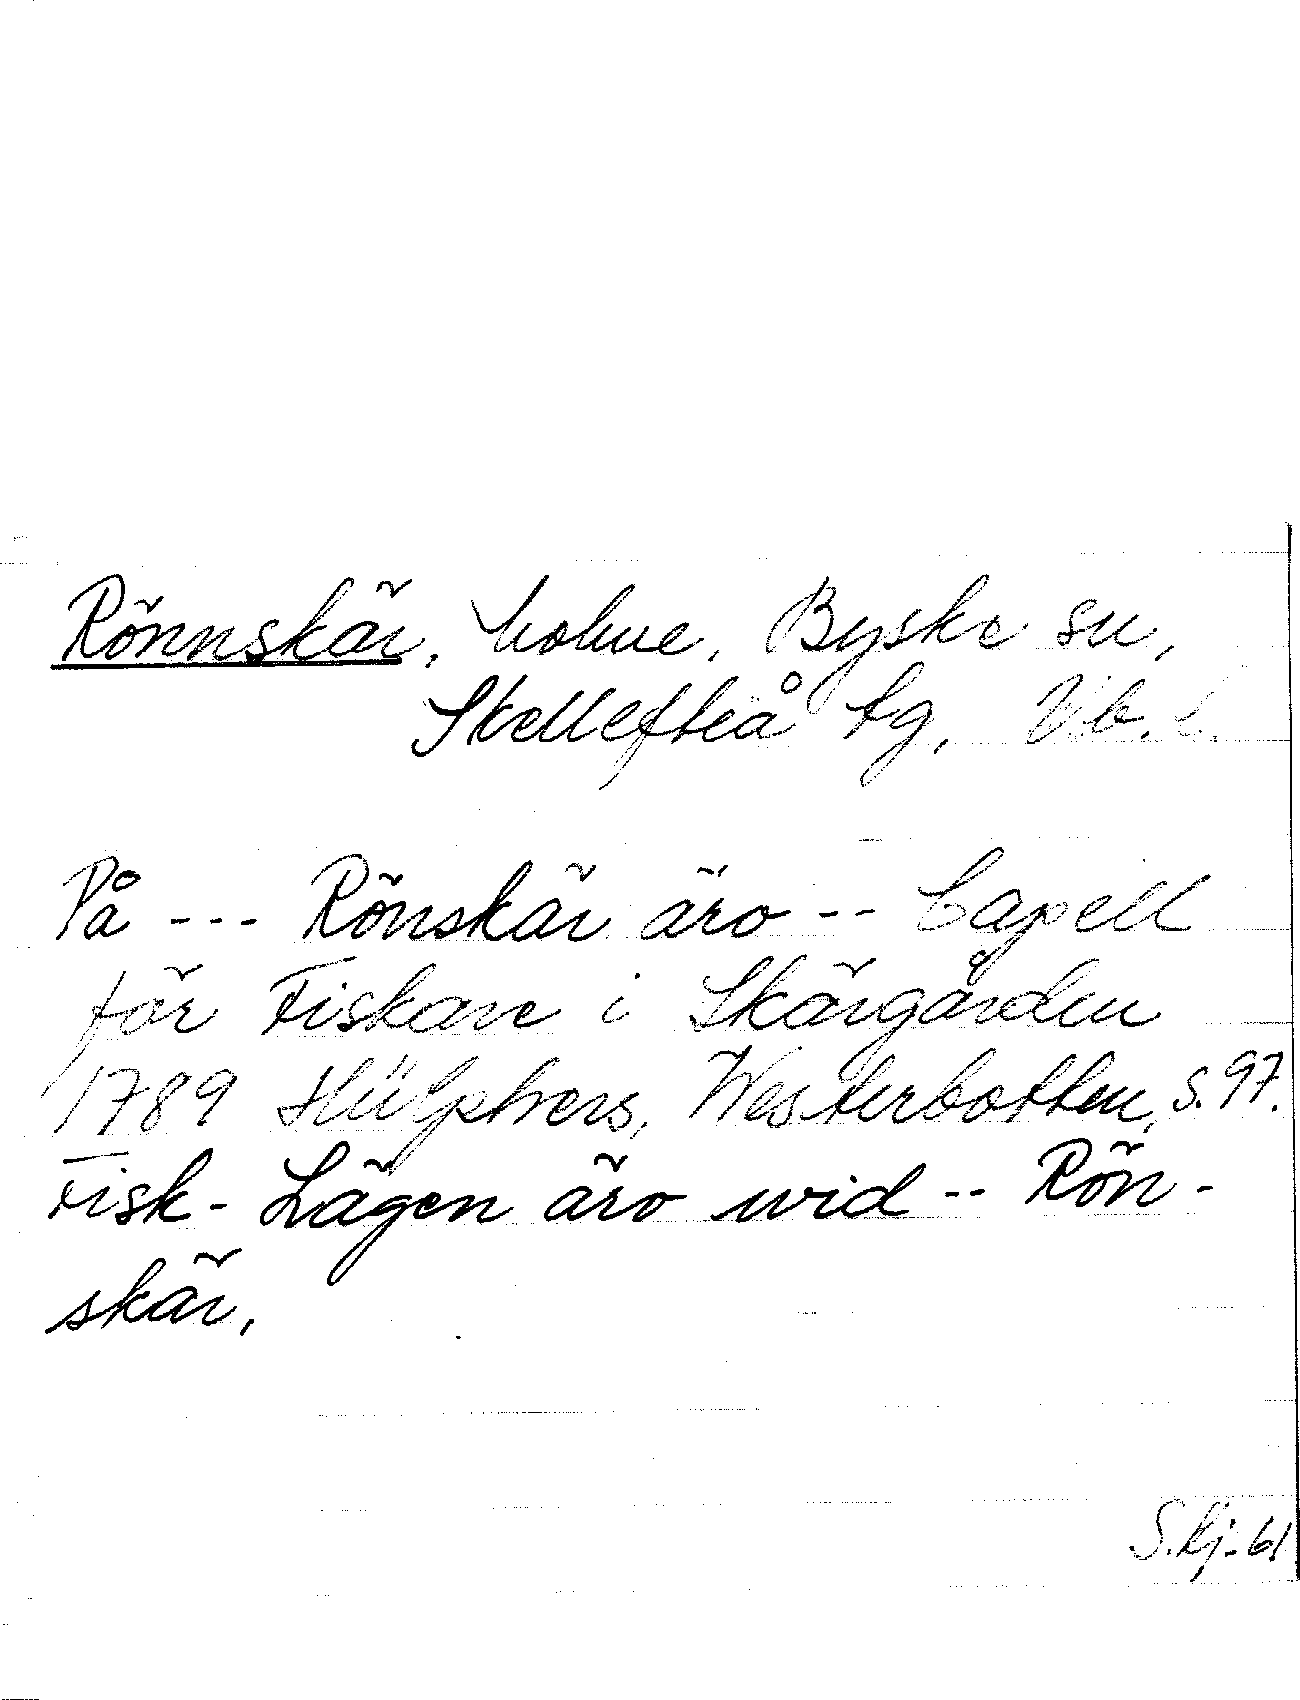 Rönnskär, holme, Byske sn,
Skellefteå tg, Vb. l.
På --- Rönskär äro -- Capell
för Fiskare i Skärgården
1789 Hülphers, Westerbotten, s. 97.
Fisk-Lägen äro wid -- Rön-
skär.
S. Lj-61